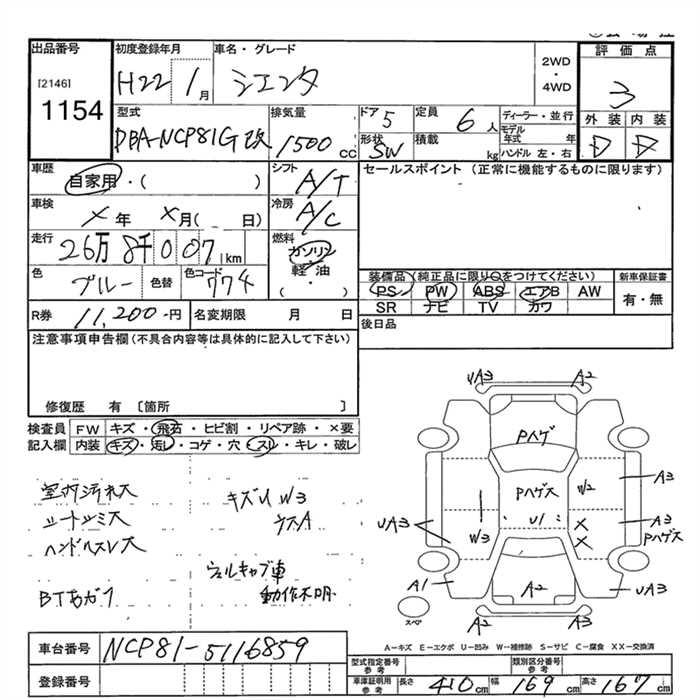 出品番号
[2146]
1154
初度登録年月
H22 1月
車名・グレード
シエンタ
2WD
・
4WD
評価点
3
外装 内装
D D
型式
DBA-NCP81G改
排気量
1500 cc
ドア 5
形状 SW
定員 6 人
積載 kg
ディーラー・並行
モデル年式 年
ハンドル 左・右
車歴
自家用・( )
シフト
A/T
車検
× 年 × 月( 日)
冷房
A/C
走行
26万 8千 007 km
燃料
ガソリン
軽油
( ・ )
色
ブルー
色替
色コード 774
R券 11,200-円
名変期限 月 日
セールスポイント(正常に機能するものに限ります)
装備品(純正品に限り○をつけてください)
PS PW ABS エアB AW
SR ナビ TV カワ
新車保証書
有・無
後日品
注意事項申告欄(不具合内容等は具体的に記入して下さい)
修復歴 有 〔箇所 〕
検査員 FW キズ・飛石・ヒビ割・リペア跡・×要
記入欄 内装 キズ・汚レ・コゲ・穴・スリ・キレ・破レ
室内汚れ大
シートシミ大
ハンドルスレ大
BTあがり
キズU W3
ウスA
ウェルキャブ車
動作不明
UA3 A2
Pハゲ
Pハゲス
W2
A3
UA3
U1
W3
A3
Pハゲス
A1
A2
UA3
スペア
A2 A3
車台番号 NCP81-5116859
登録番号
A−キズ E−エクボ U−凹み W−補修跡 S−サビ C−腐食 XX−交換済
型式指定番号 参考
類別区分番号 参考
車庫証明用 参考
長さ 410 cm 幅 169 cm 高さ 167 cm